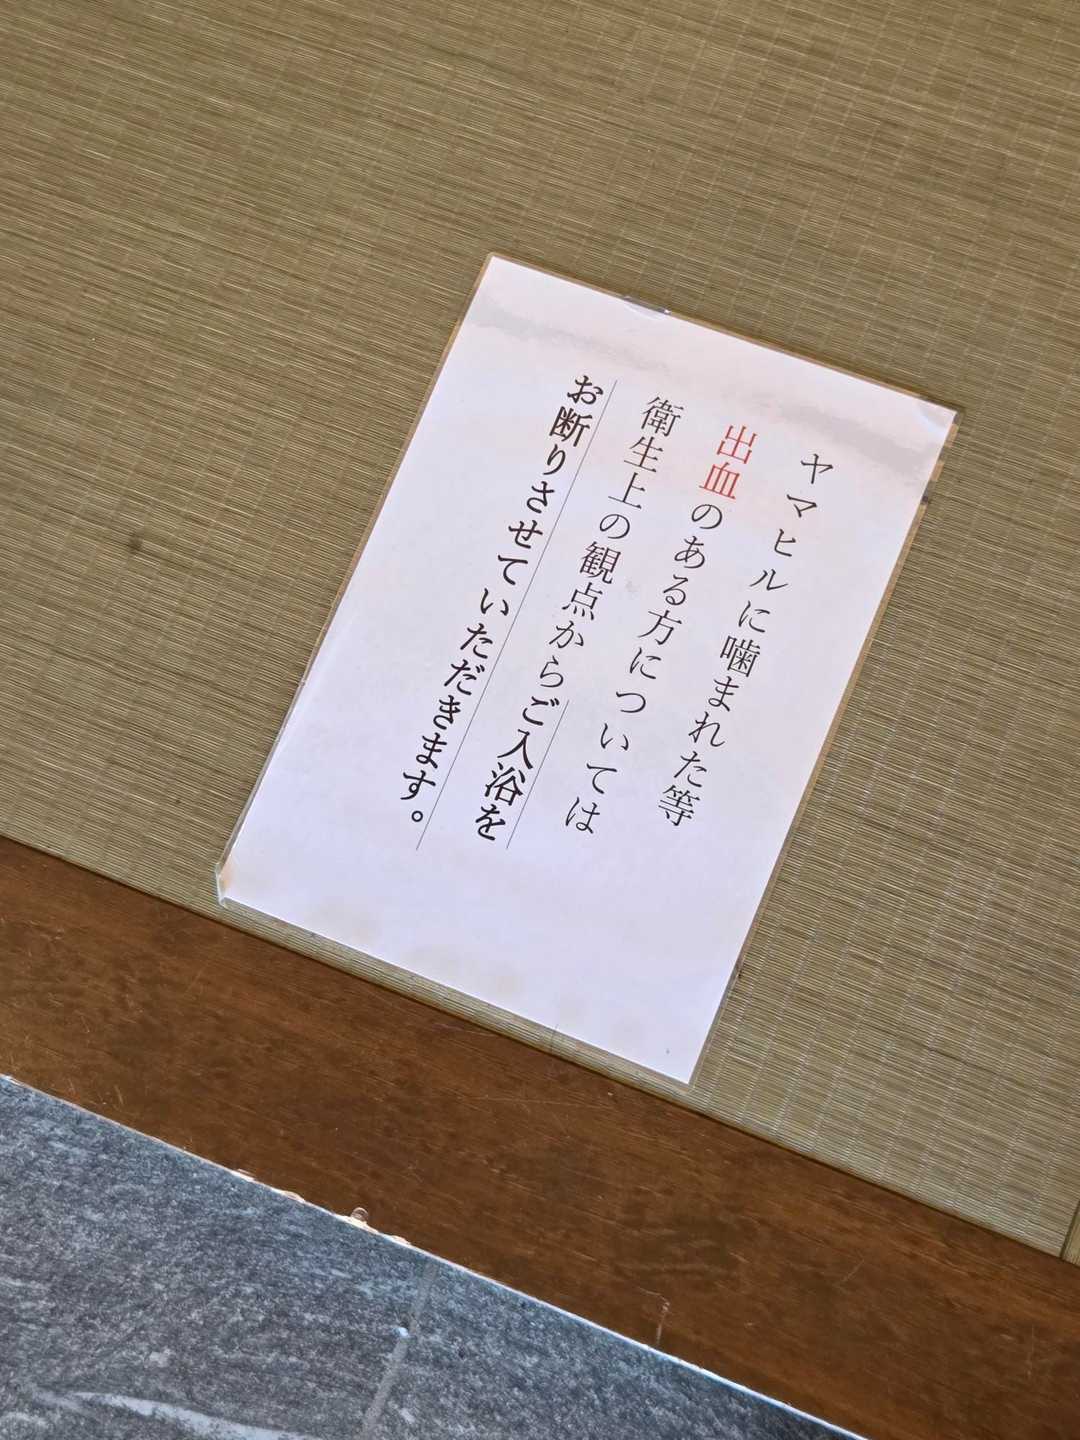 ヤマヒルに噛まれた等
出血のある方については
衛生上の観点からご入浴を
お断りさせていただきます。